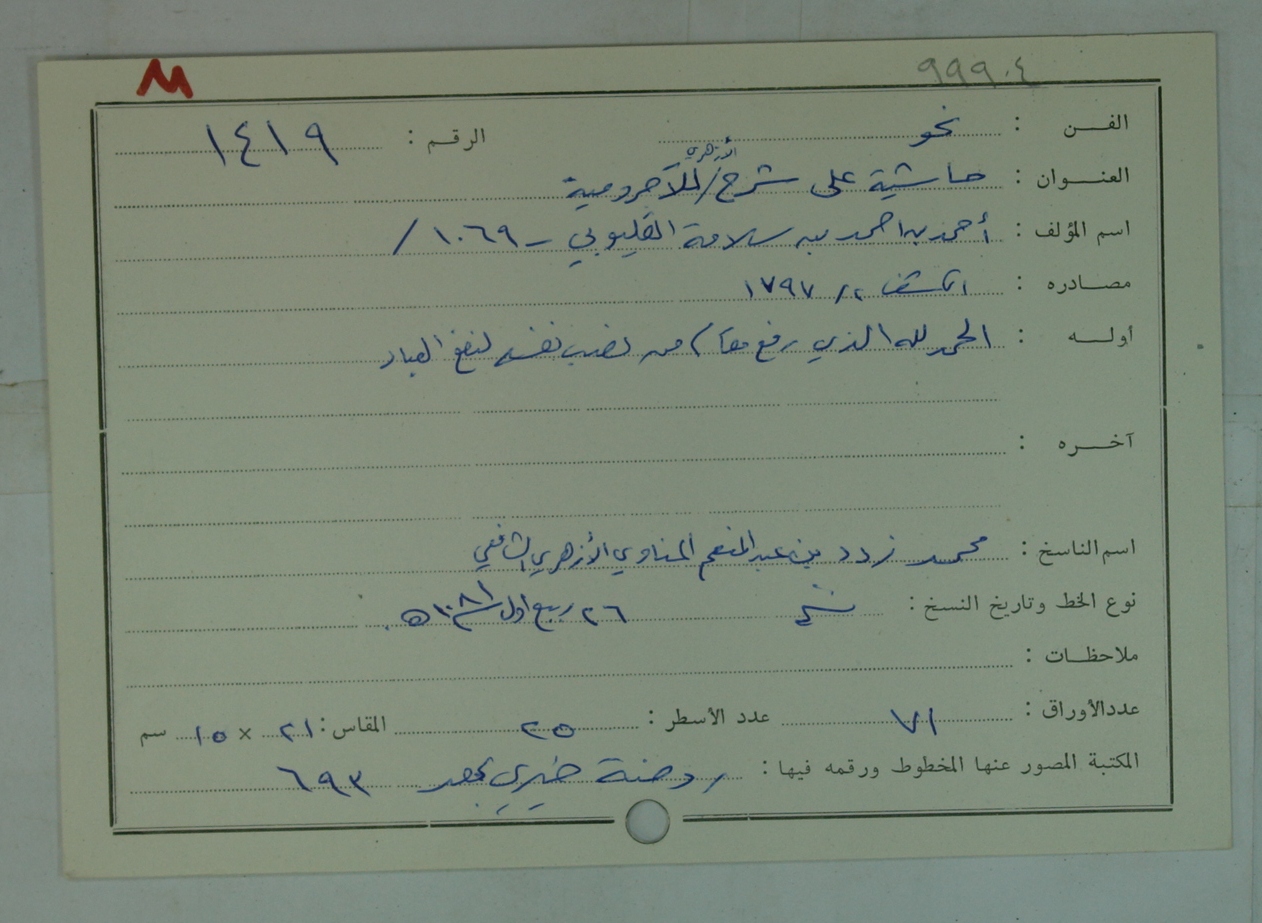 ٩٩٩٠٤
الفن : نحو الرقم : ١٤١٩
العنوان : حاشية على شرح / الأزهري للآجرومية
اسم المؤلف : أحمد بن احمد بن سلامة القليوبي - ١٠٦٩ /
مصادره : الكشف ٢/ ١٧٩٧
أوله : الحمد لله الذي رفع مقام من نصب نفسه لنفع العباد
آخره :
اسم الناسخ : محمد بن عبد المنعم المناوي الأزهري الشافعي
نوع الخط وتاريخ النسخ : نسخ ٢٦ ربيع اول سنة ١٠٨١ ه
ملاحظات :
عدد الأوراق : ٧١ عدد الأسطر : ٢٥ المقاس : ٢١ × ١٥ سم
المكتبة المصور عنها المخطوط ورقمه فيها : روضة خيري بمصر ٦٩٣